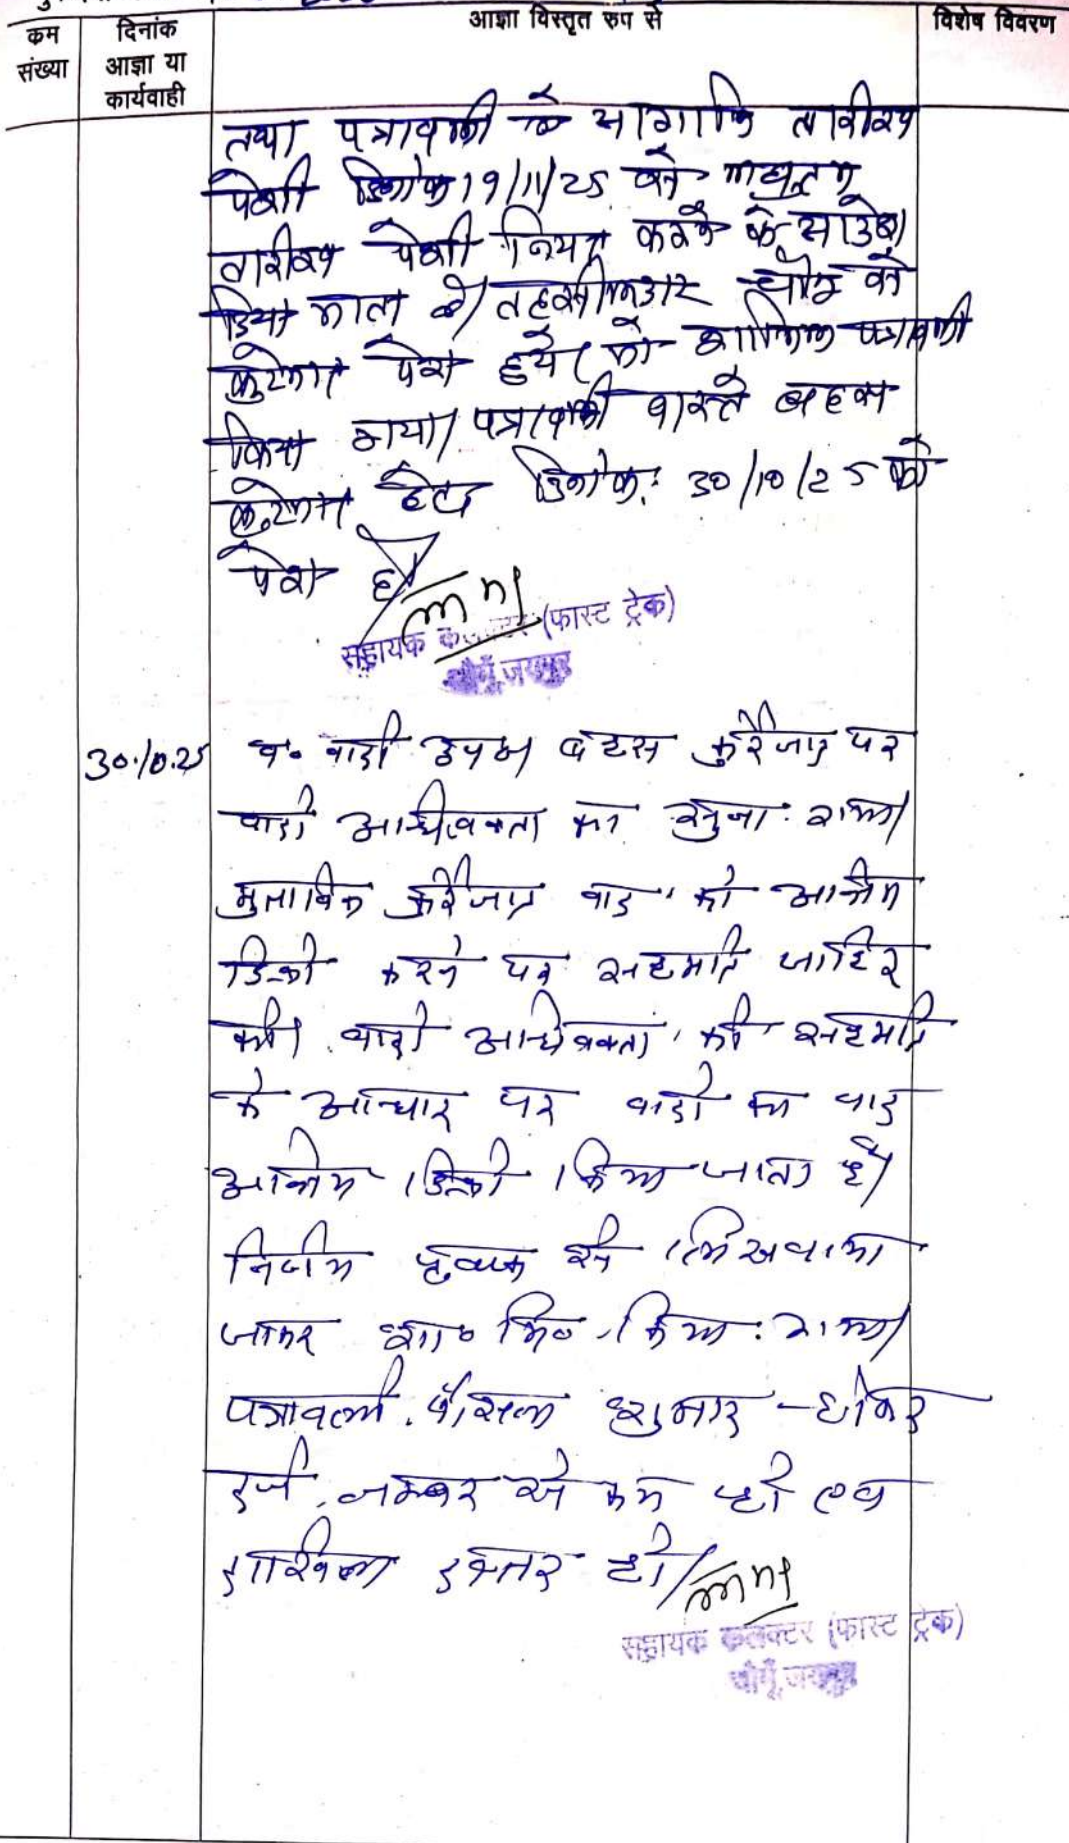 क्रम संख्या
दिनांक आज्ञा या कार्यवाही
आज्ञा विस्तृत रुप से
विशेष विवरण
तथा पत्रावली को आगामी तारीख
पेशी दिनांक 19/11/25 से
तारीख पेशी नियत करने के आदेश
दिया जाता है। तहसीलदार चौमू से
कुरेजात पेश हुये। को शामिल पत्रावली
किया गया। पत्रावली वास्ते बहस
कुरेजात हेतु दिनांक: 30/10/25 को
पेश हो।
सहायक कलक्टर (फास्ट ट्रेक)
चौमूँ, जयपुर
30.10.25
व. वादी उप० बहस कुरेजात पर
वादी अधिवक्ता का सुना गया।
मुताबिक कुरेजात वाद को अन्तिम
डिक्री करने पर सहमति जाहिर
की। वादी अधिवक्ता की सहमति
के आधार पर वादी का वाद
अन्तिम डिक्री किया जाता है।
निर्णय पृथक से लिखवाया
जाकर शा० मि० किया गया।
पत्रावली फैसल शुमार होकर
दर्ज नम्बर से कम हो एवं
दाखिल दफ्तर हो।
सहायक कलक्टर (फास्ट ट्रेक)
चौमूँ, जयपुर